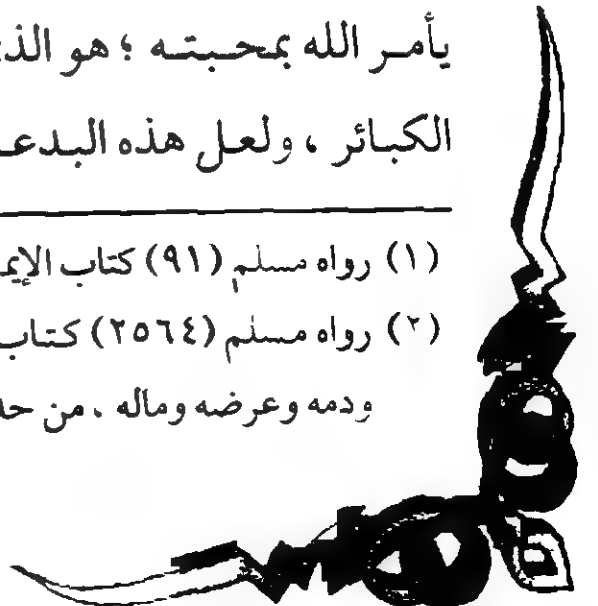 يأمر الله بمحبته ؛ هو الذ
الكبائر ، ولعل هذه البدع
(١) رواه مسلم (٩١) كتاب الإيم
(٢) رواه مسلم (٢٥٦٤) كتاب
ودمه وعرضه وماله ، من حد